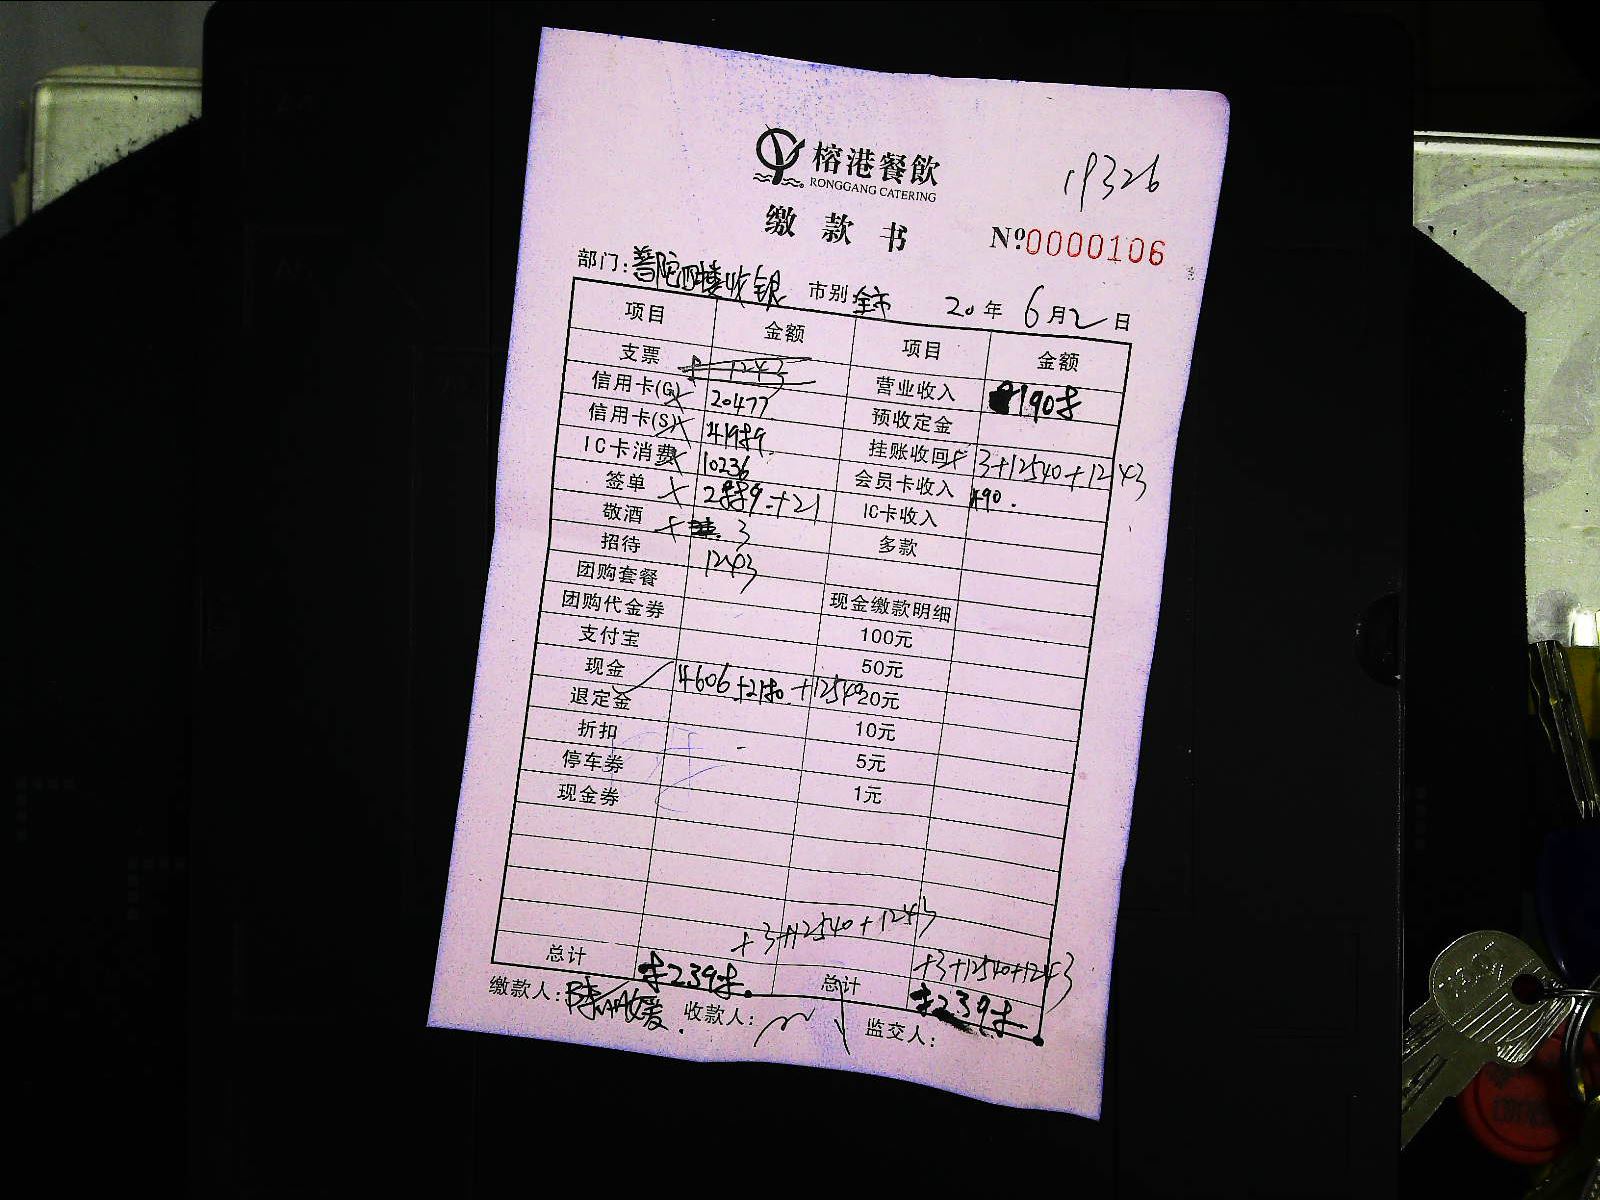 榕港餐飲
RONGGANG CATERING
19326
缴 款 书
Nº0000106
部门：普陀四楼收银 市别 全市 20 年 6 月 2 日
项目 金额 项目 金额
支票 1243 营业收入
信用卡(G) 20477 预收定金
信用卡(S) 挂账收回 3+12540+1243
IC卡消费 10236 会员卡收入 490.
签单 IC卡收入
敬酒 3 多款
招待 1243
团购套餐 现金缴款明细
团购代金券 100元
支付宝 50元
现金 20元
退定金 10元
折扣 5元
停车券 1元
现金券
+3+12540+1243
+3+12540+1243
总计 总计
缴款人： 收款人： 监交人：